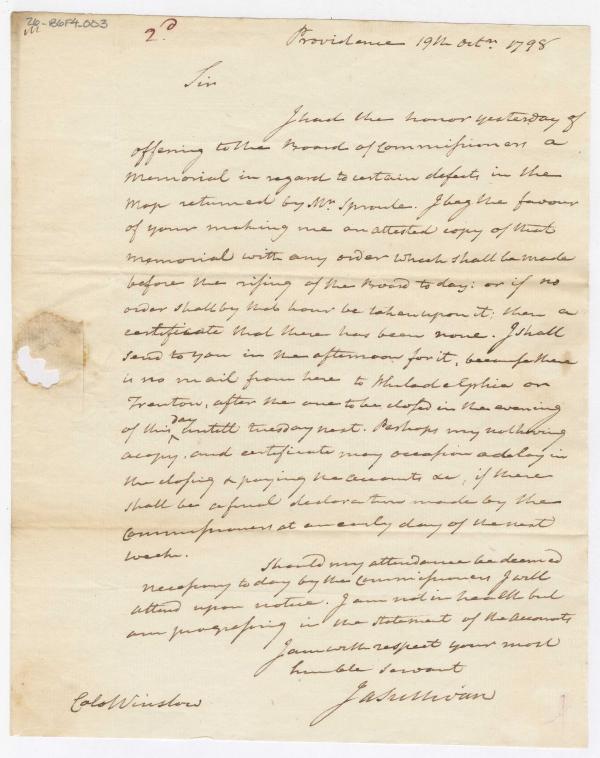 26-B6F4-003
2.d
Providence 19th Octr. 1798
Sir
I had the honor yesterday of
offering to the Board of Commissioners a
memorial in regard to certain defects in the
Map returned by Mr. Sproule. I beg the favour
of your making me an attested copy of that
memorial with any order which shall be made
before the rising of the Board to day: or if no
order shall by that hour be taken upon it; then a
certificate that there has been none. I shall
send to you in the afternoon for it, because there
is no mail from here to Philadelphia or
Trenton, after the one to be closed in the evening
of this day untill tuesday next. Perhaps my not having
a copy, and certificate may occasion a delay in
the closing & paying the accounts &c, if there
shall be a final declaration made by the
Commissioners at an early day of the next
week.
Should my attendance be deemed
necessary to day by the Commissioners I will
attend upon notice. I am not in health but
am progressing in the statement of the accounts
I am with respect your most
humble servant
Ja Sullivan
Colo Winslow